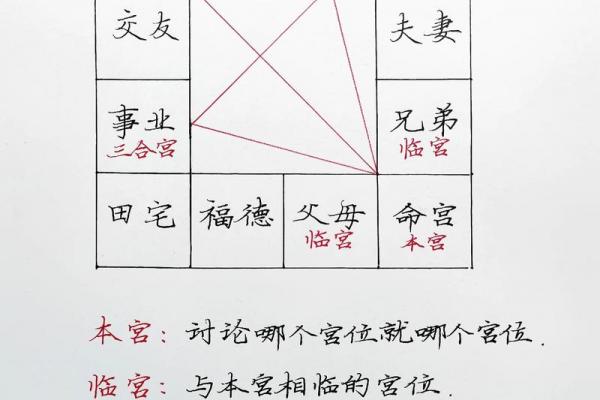 交友
夫妻
事业
三合宫
兄弟
临宫
田宅
福德
父母
临宫
命宫
本宫
本宫：讨论哪个宫位就哪个宫位.
临宫：与本宫相临的宫位.